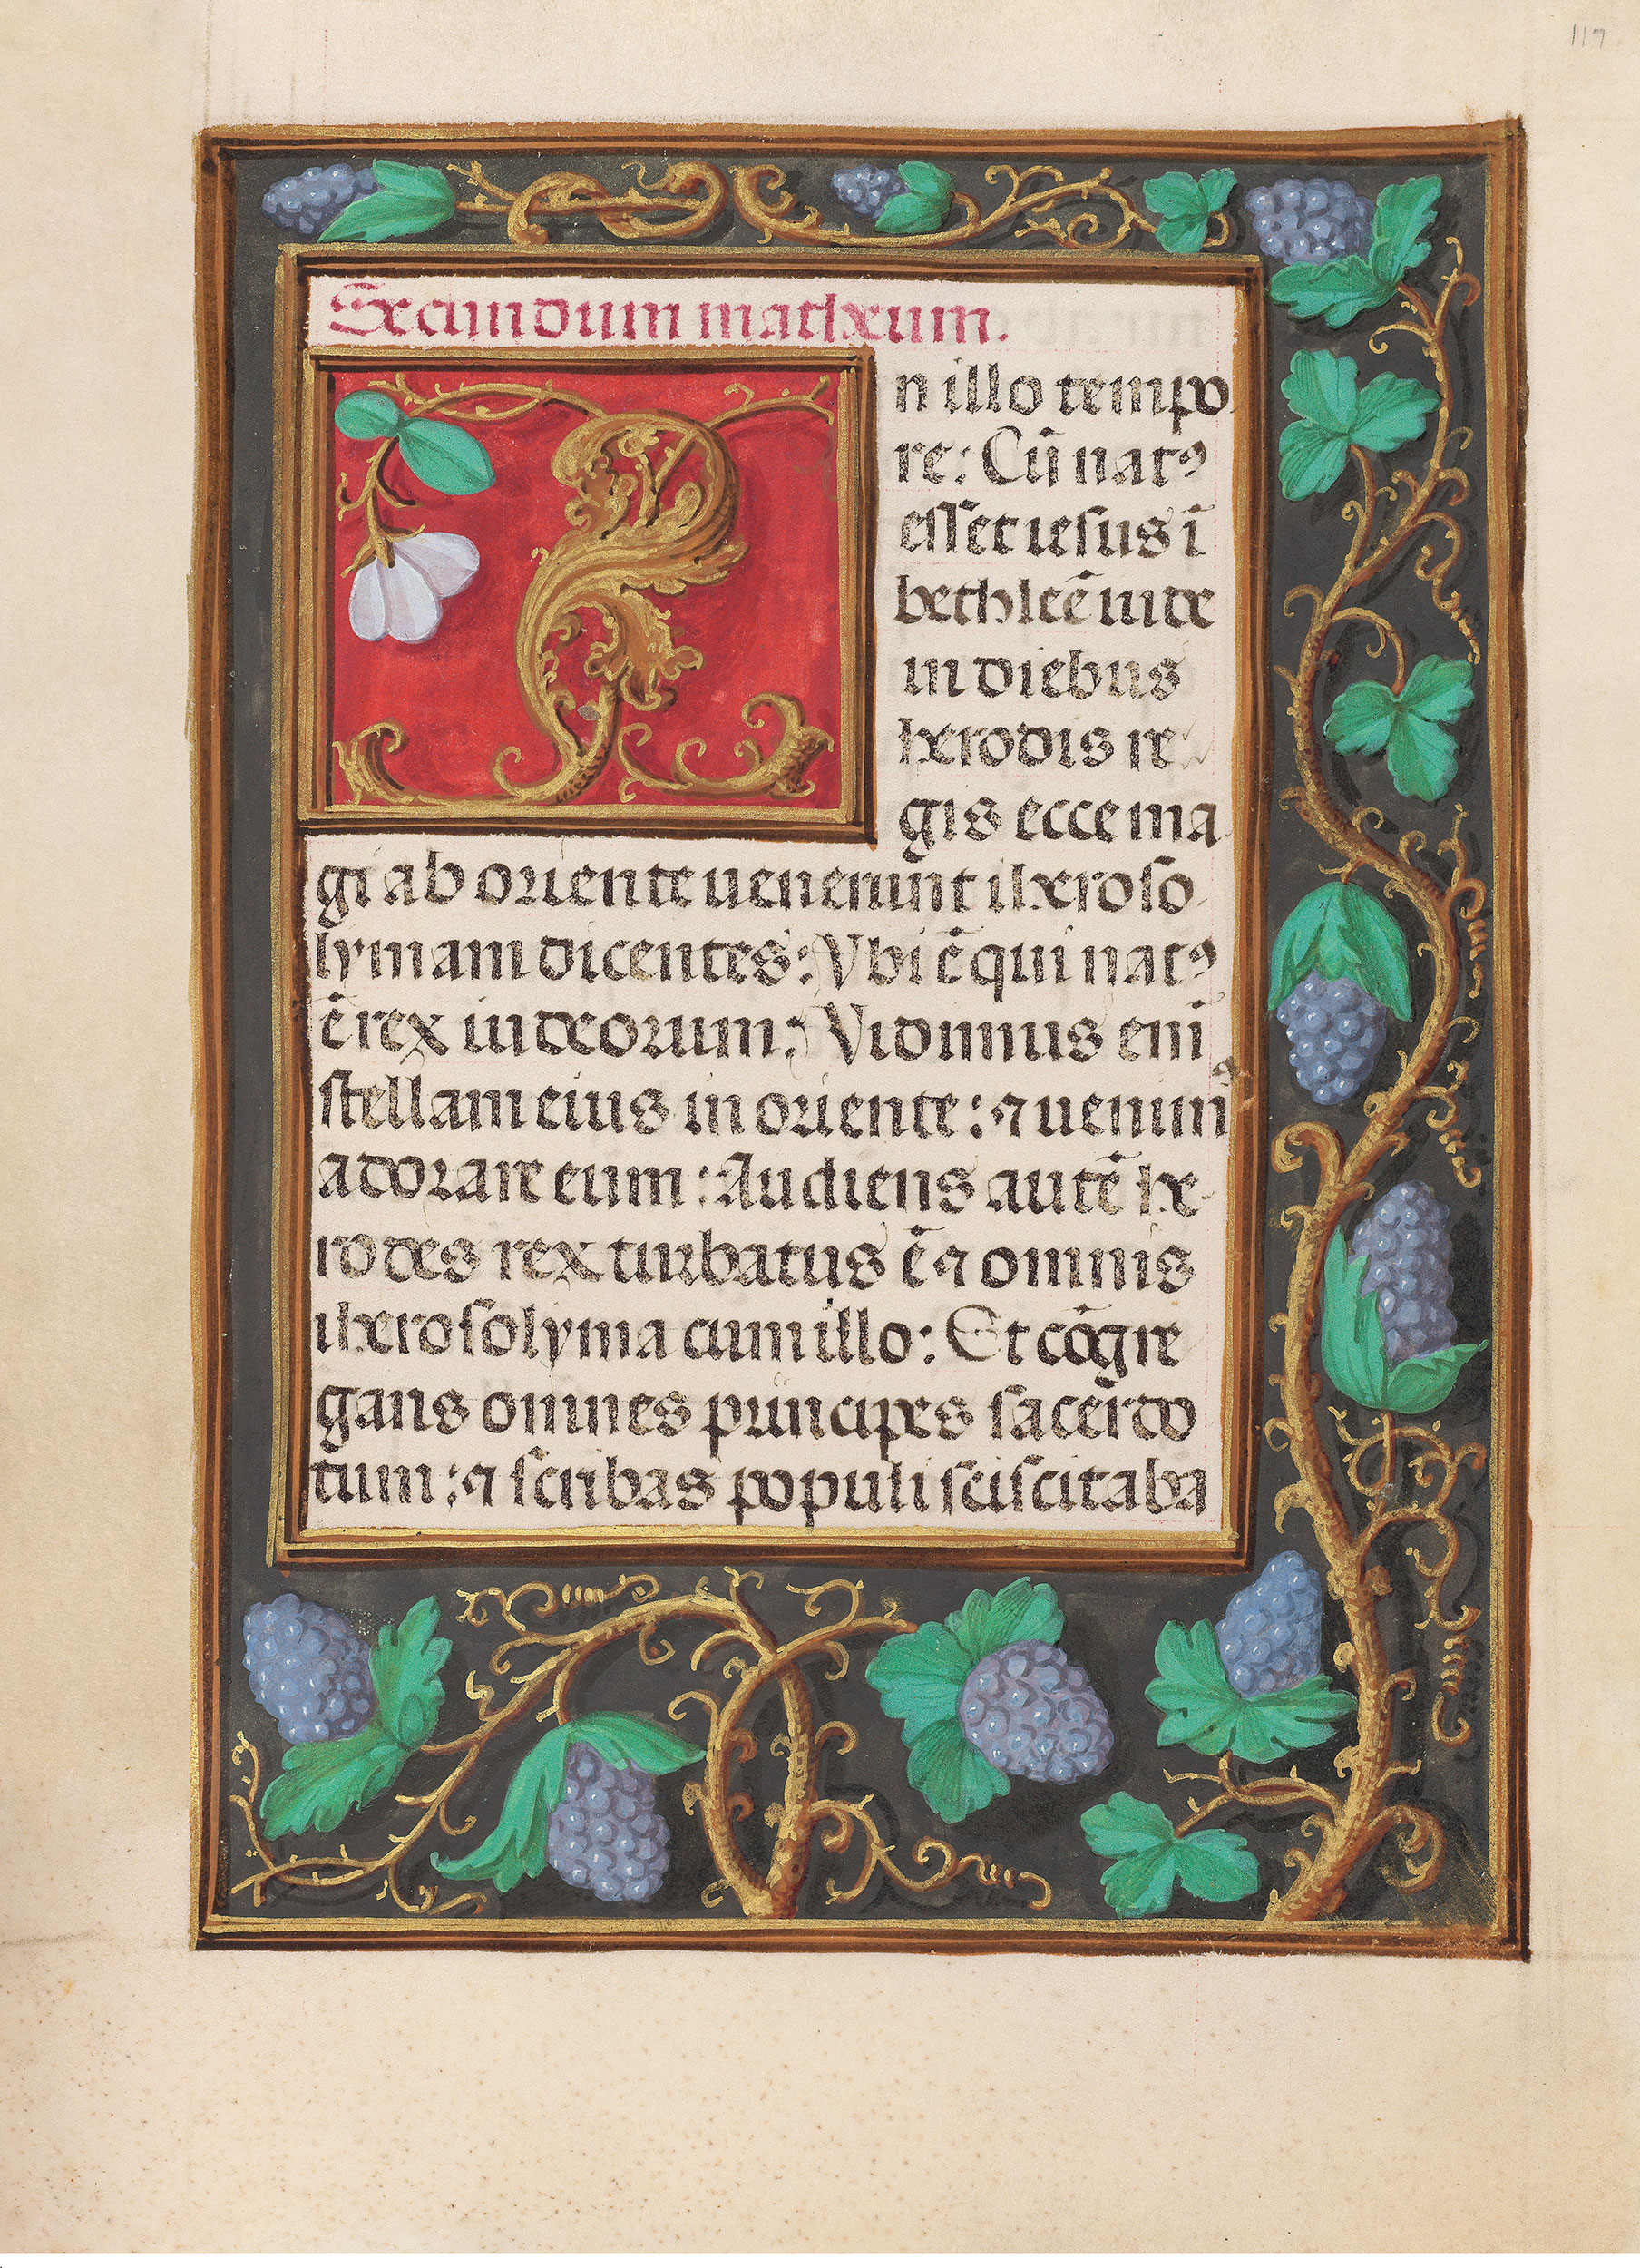 117
Secundum matheum.
In illo tempo
re: Cū natꝰ
esset iesus ī
bethleē iude
in diebus
herodis re
gis ecce ma
gi ab oriente uenerunt iheroso
lymam dicentes: Vbi ē qui natꝰ
ē rex iudeorum: Vidimus eni
stellam eius in oriente: ⁊ uenimꝰ
adorare eum: Audiens autē he
rodes rex turbatus ē ⁊ omnis
iherosolyma cum illo: Et cōgre
gans omnes principes sacerdo
tum: ⁊ scribas populi sciscitaba